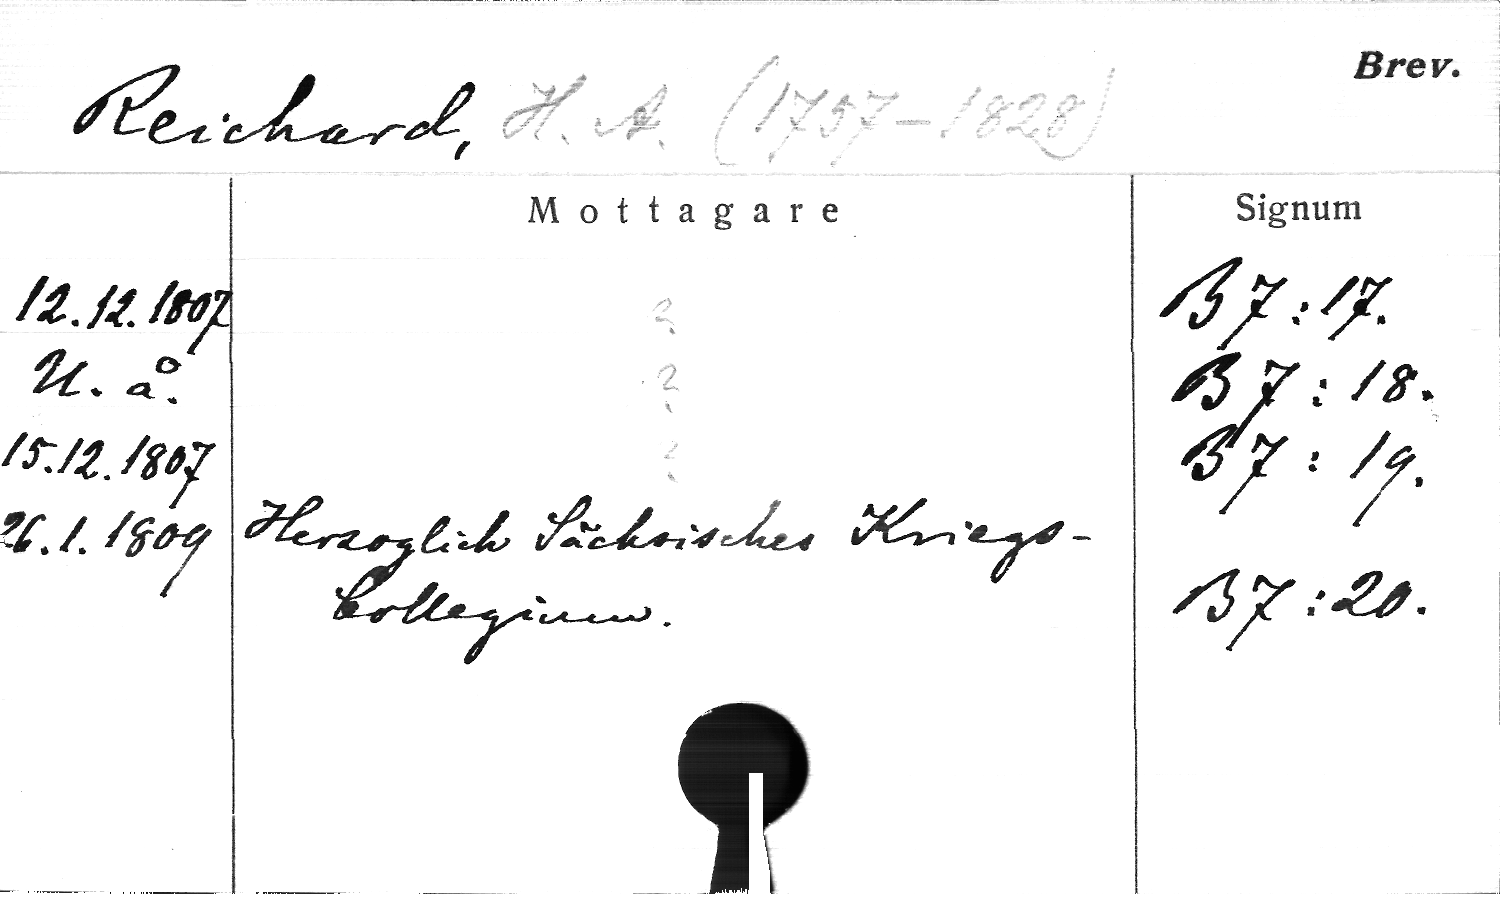 Brev.
Reichard, H. A. (1757–1828)
Mottagare Signum
12.12.1807 ? B 7:17.
U. å. ? B 7:18.
15.12.1807 ? B 7:19.
26.1.1809 Herzoglich Sächsisches Kriegs-
Collegium. B 7:20.